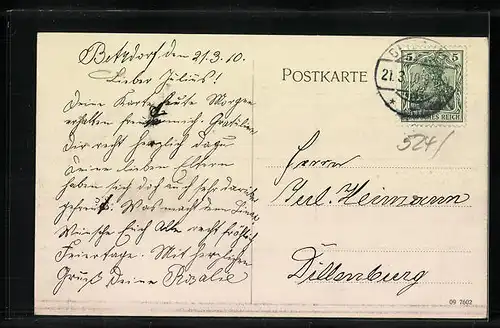 Betzdorf den 21.3.10.
Lieber Julius!
Deine Karte heute Morgen
erhalten freut mich. Gratuliere
Dir recht herzlich dazu
Deine lieben Eltern
haben sich doch auch sehr darüber
gefreut. Was macht denn
Wünsche Euch Allen recht fröhliche
Feiertage. Mit herzlichem
Gruß Deine Rosalie
POSTKARTE
21.3.10
5 5
DEUTSCHES REICH
524/
Herrn
Jul. Heimann
Dillenburg
09 7602